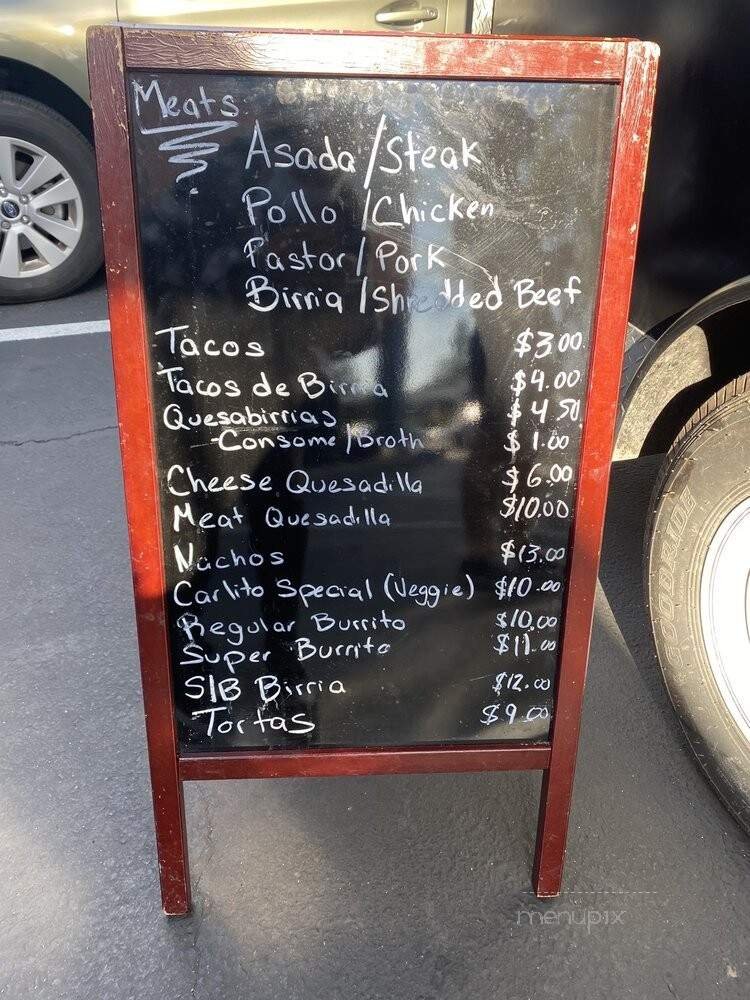 Meats
Asada/Steak
Pollo/Chicken
Pastor/Pork
Birria/Shredded Beef
Tacos $3.00
Tacos de Birria $4.00
Quesabirrias $4.50
-Consome/Broth $1.00
Cheese Quesadilla $6.00
Meat Quesadilla $10.00
Nachos $13.00
Carlito Special (Veggie) $10.00
Regular Burrito $10.00
Super Burrito $11.00
S/B Birria $12.00
Tortas $9.00
menupix